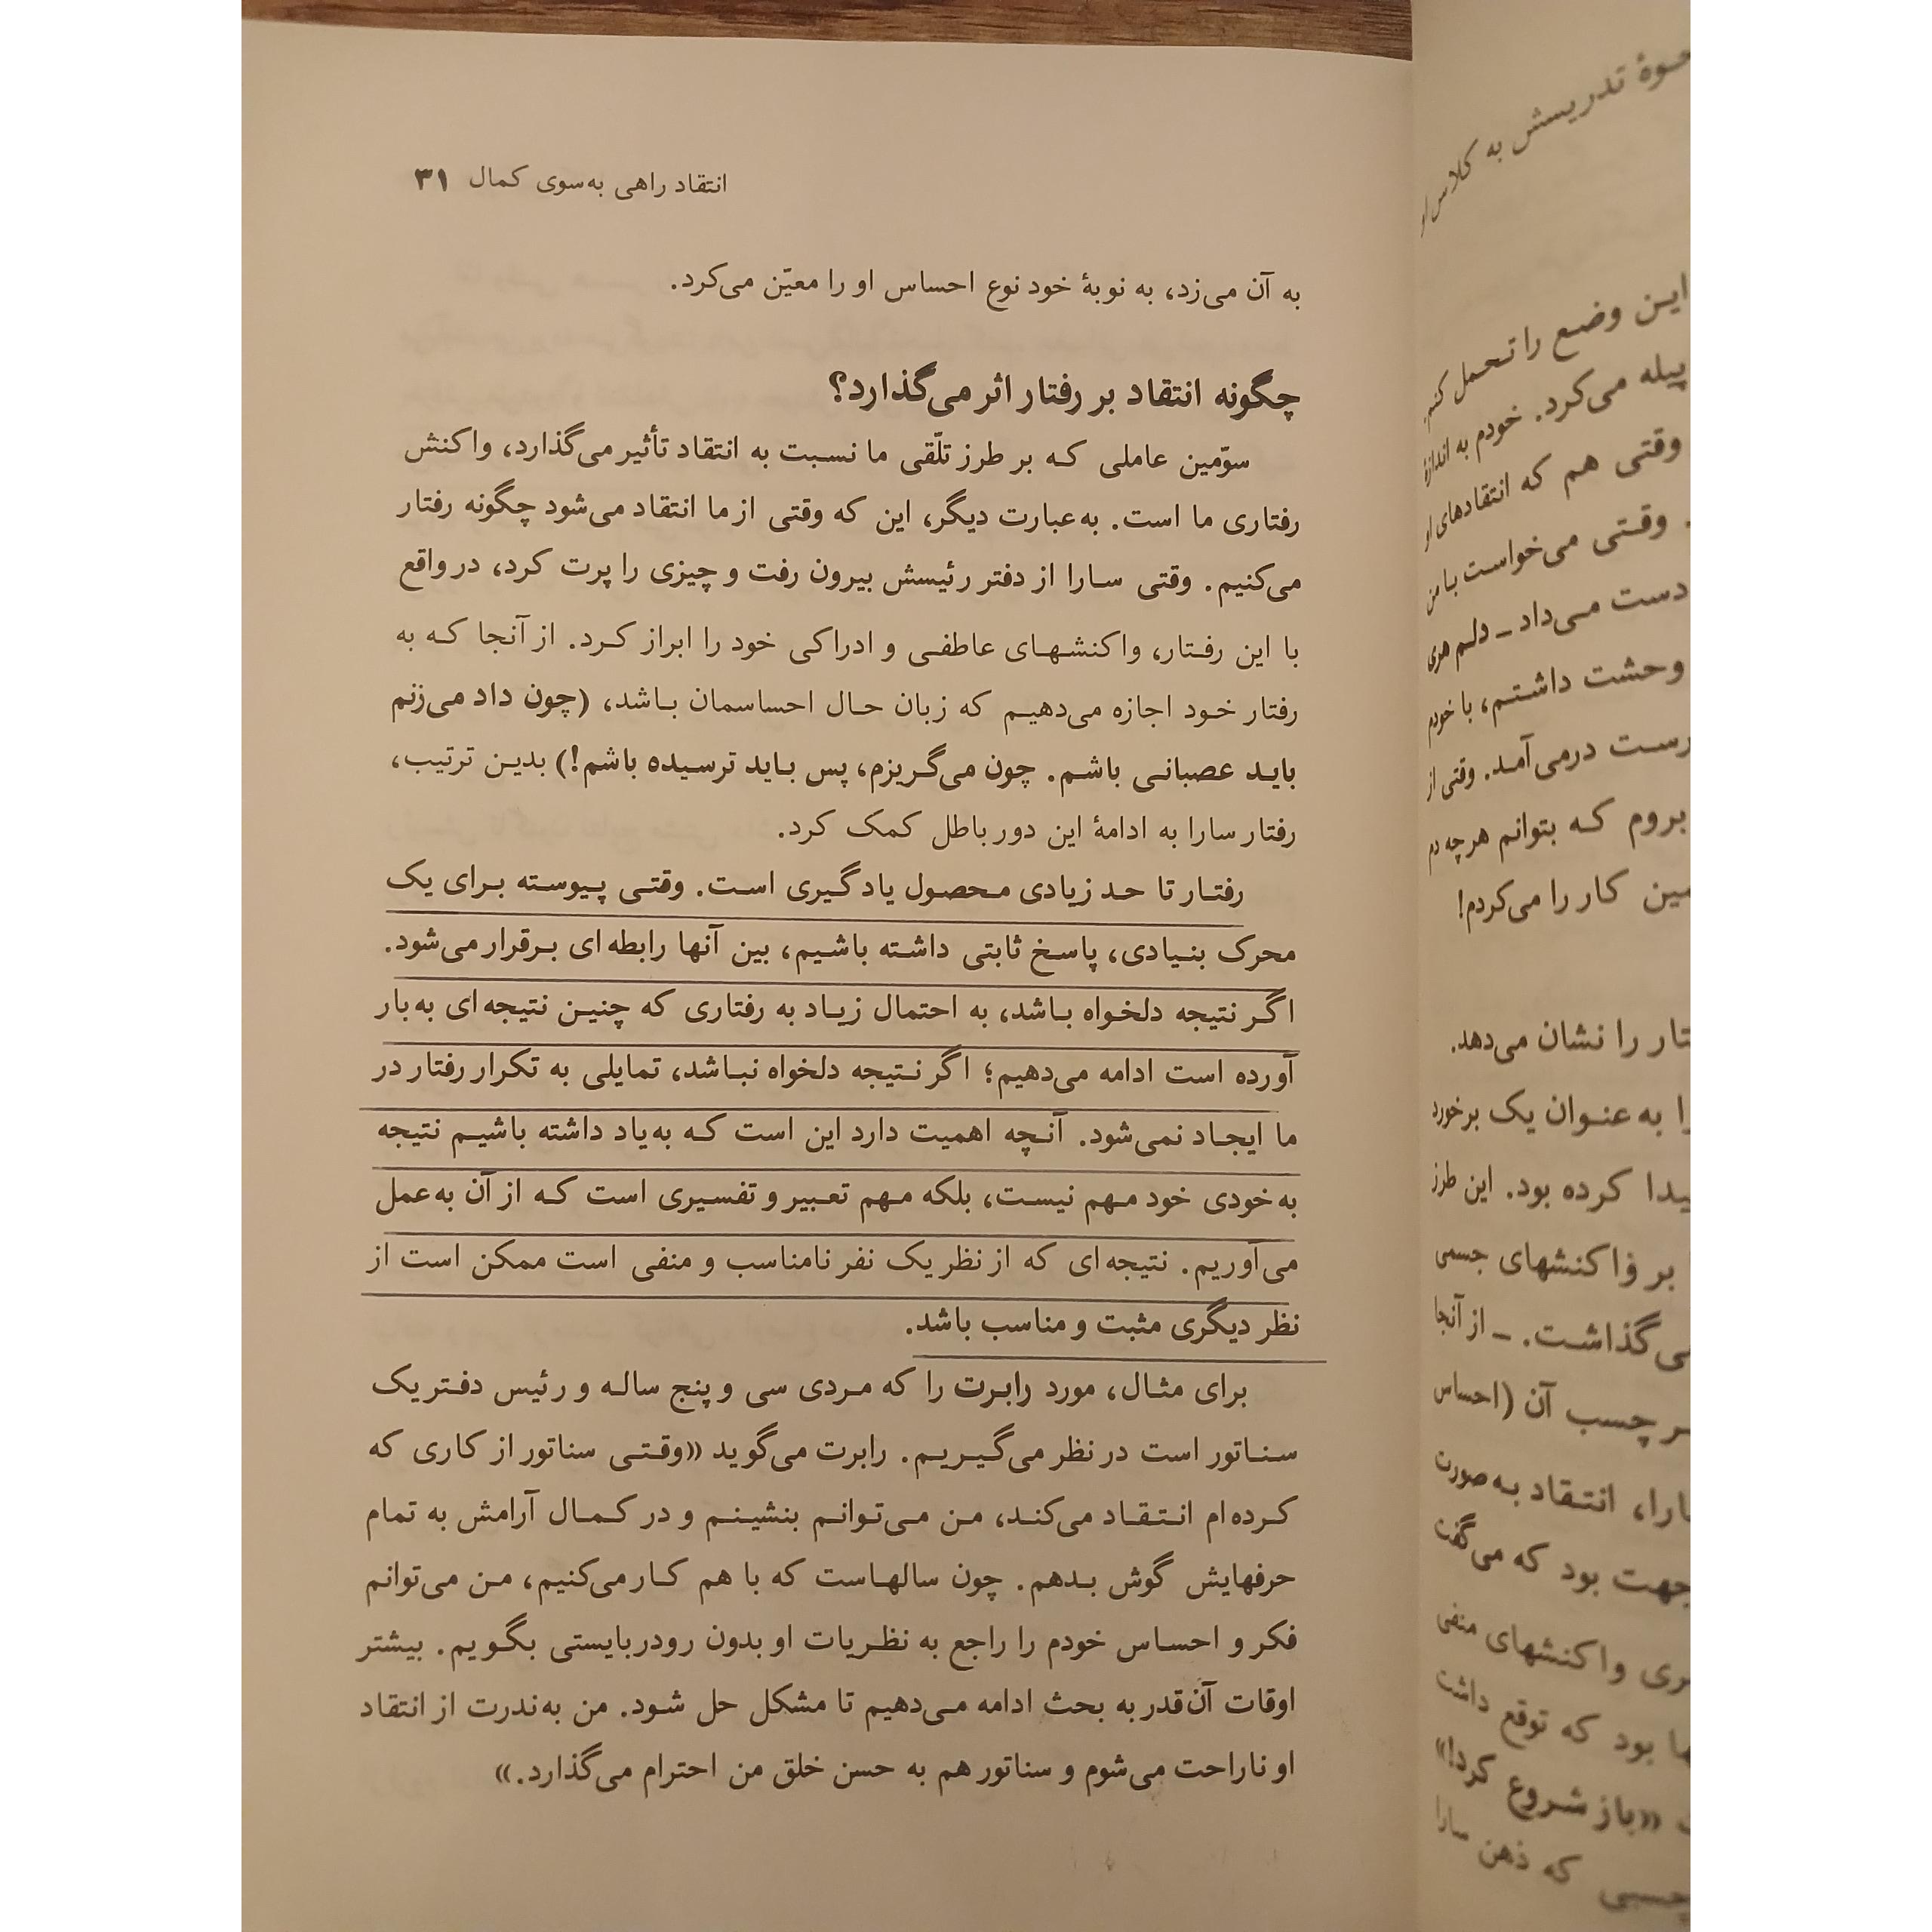 انتقاد راهی به‌سوی کمال ۳۱
به آن می‌زد، به نوبهٔ خود نوع احساس او را معیّن می‌کرد.
چگونه انتقاد بر رفتار اثر می‌گذارد؟
سوّمین عاملی که بر طرز تلّقی ما نسبت به انتقاد تأثیر می‌گذارد، واکنش
رفتاری ما است. به‌عبارت دیگر، این که وقتی از ما انتقاد می‌شود چگونه رفتار
می‌کنیم. وقتی سارا از دفتر رئیسش بیرون رفت و چیزی را پرت کرد، در واقع
با این رفتار، واکنشهای عاطفی و ادراکی خود را ابراز کرد. از آنجا که به
رفتار خود اجازه می‌دهیم که زبان حال احساسمان باشد، (چون داد می‌زنم
باید عصبانی باشم. چون می‌گریزم، پس باید ترسیده باشم!) بدین ترتیب،
رفتار سارا به ادامهٔ این دور باطل کمک کرد.
رفتار تا حد زیادی محصول یادگیری است. وقتی پیوسته برای یک
محرک بنیادی، پاسخ ثابتی داشته باشیم، بین آنها رابطه‌ای برقرار می‌شود.
اگر نتیجه دلخواه باشد، به احتمال زیاد به رفتاری که چنین نتیجه‌ای به‌بار
آورده است ادامه می‌دهیم؛ اگر نتیجه دلخواه نباشد، تمایلی به تکرار رفتار در
ما ایجاد نمی‌شود. آنچه اهمیت دارد این است که به‌یاد داشته باشیم نتیجه
به‌خودی خود مهم نیست، بلکه مهم تعبیر و تفسیری است که از آن به‌عمل
می‌آوریم. نتیجه‌ای که از نظر یک نفر نامناسب و منفی است ممکن است از
نظر دیگری مثبت و مناسب باشد.
برای مثال، مورد رابرت را که مردی سی و پنج ساله و رئیس دفتر یک
سناتور است در نظر می‌گیریم. رابرت می‌گوید «وقتی سناتور از کاری که
کرده‌ام انتقاد می‌کند، من می‌توانم بنشینم و در کمال آرامش به تمام
حرفهایش گوش بدهم. چون سالهاست که با هم کار می‌کنیم، من می‌توانم
فکر و احساس خودم را راجع به نظریات او بدون رودربایستی بگویم. بیشتر
اوقات آن‌قدر به بحث ادامه می‌دهیم تا مشکل حل شود. من به‌ندرت از انتقاد
او ناراحت می‌شوم و سناتور هم به حسن خلق من احترام می‌گذارد.»
تدریسش به کلاس
این وضع را تحمل
پیله می‌کرد. خودم به اندازهٔ
وقتی هم که انتقادهای او
. وقتی می‌خواست با من
دست می‌داد ـ دلم هری
وحشت داشتم، با خودم
درمی‌آمد. وقتی از
بروم که بتوانم هر چه
کار را می‌کردم!
را نشان می‌دهد.
به‌عنوان یک برخورد
کرده بود. این طرز
بر واکنشهای جسمی
ـ از آنجا
چسب آن (احساس
انتقاد به‌صورت
بود که می‌گفت
واکنشهای منفی
بود که توقع داشت
«باز شروع کرد!»
که ذهن سارا